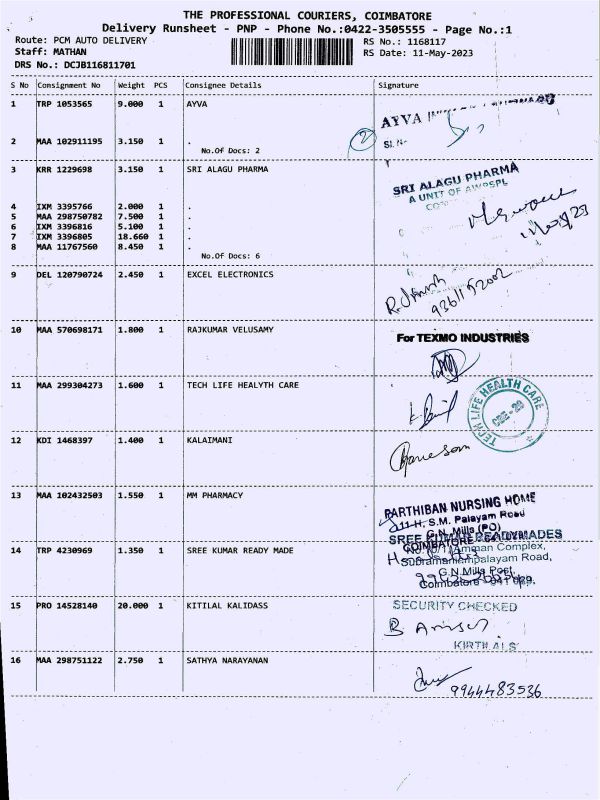 THE PROFESSIONAL COURIERS, COIMBATORE
Delivery Runsheet - PNP - Phone No.:0422-3505555 - Page No.:1
Route: PCM AUTO DELIVERY RS No.: 1168117
Staff: MATHAN RS Date: 11-May-2023
DRS No.: DCJB116811701
S No Consignment No Weight PCS Consignee Details Signature
1 TRP 1053565 9.000 1 AYVA
AYVA
2 MAA 102911195 3.150 1 .
2 Sl. N
No.Of Docs: 2
3 KRR 1229698 3.150 1 SRI ALAGU PHARMA
SRI ALAGU PHARMA
A UNIT OF AWPSPL
4 IXM 3395766 2.000 1 .
5 MAA 298750782 7.500 1 .
6 IXM 3396816 5.100 1 .
7 IXM 3396805 18.660 1 .
8 MAA 11767560 8.450 1 .
No.Of Docs: 6
9 DEL 120790724 2.450 1 EXCEL ELECTRONICS
10 MAA 570698171 1.800 1 RAJKUMAR VELUSAMY
For TEXMO INDUSTRIES
11 MAA 299304273 1.600 1 TECH LIFE HEALYTH CARE
TECH LIFE HEALTH CARE
CBE - 28
12 KDI 1468397 1.400 1 KALAIMANI
13 MAA 102432503 1.550 1 MM PHARMACY
PARTHIBAN NURSING HOME
11-H, S.M. Palayam Road
G.N. Mills (PO)
COIMBATORE
14 TRP 4230969 1.350 1 SREE KUMAR READY MADE
SREE KUMAR READYMADES
Amman Complex,
Subramaniempalayam Road,
G.N.Mills Post,
Coimbatore - 641 029.
15 PRO 14528140 20.000 1 KITILAL KALIDASS
SECURITY CHECKED
KIRTILALS
16 MAA 298751122 2.750 1 SATHYA NARAYANAN
9944483536